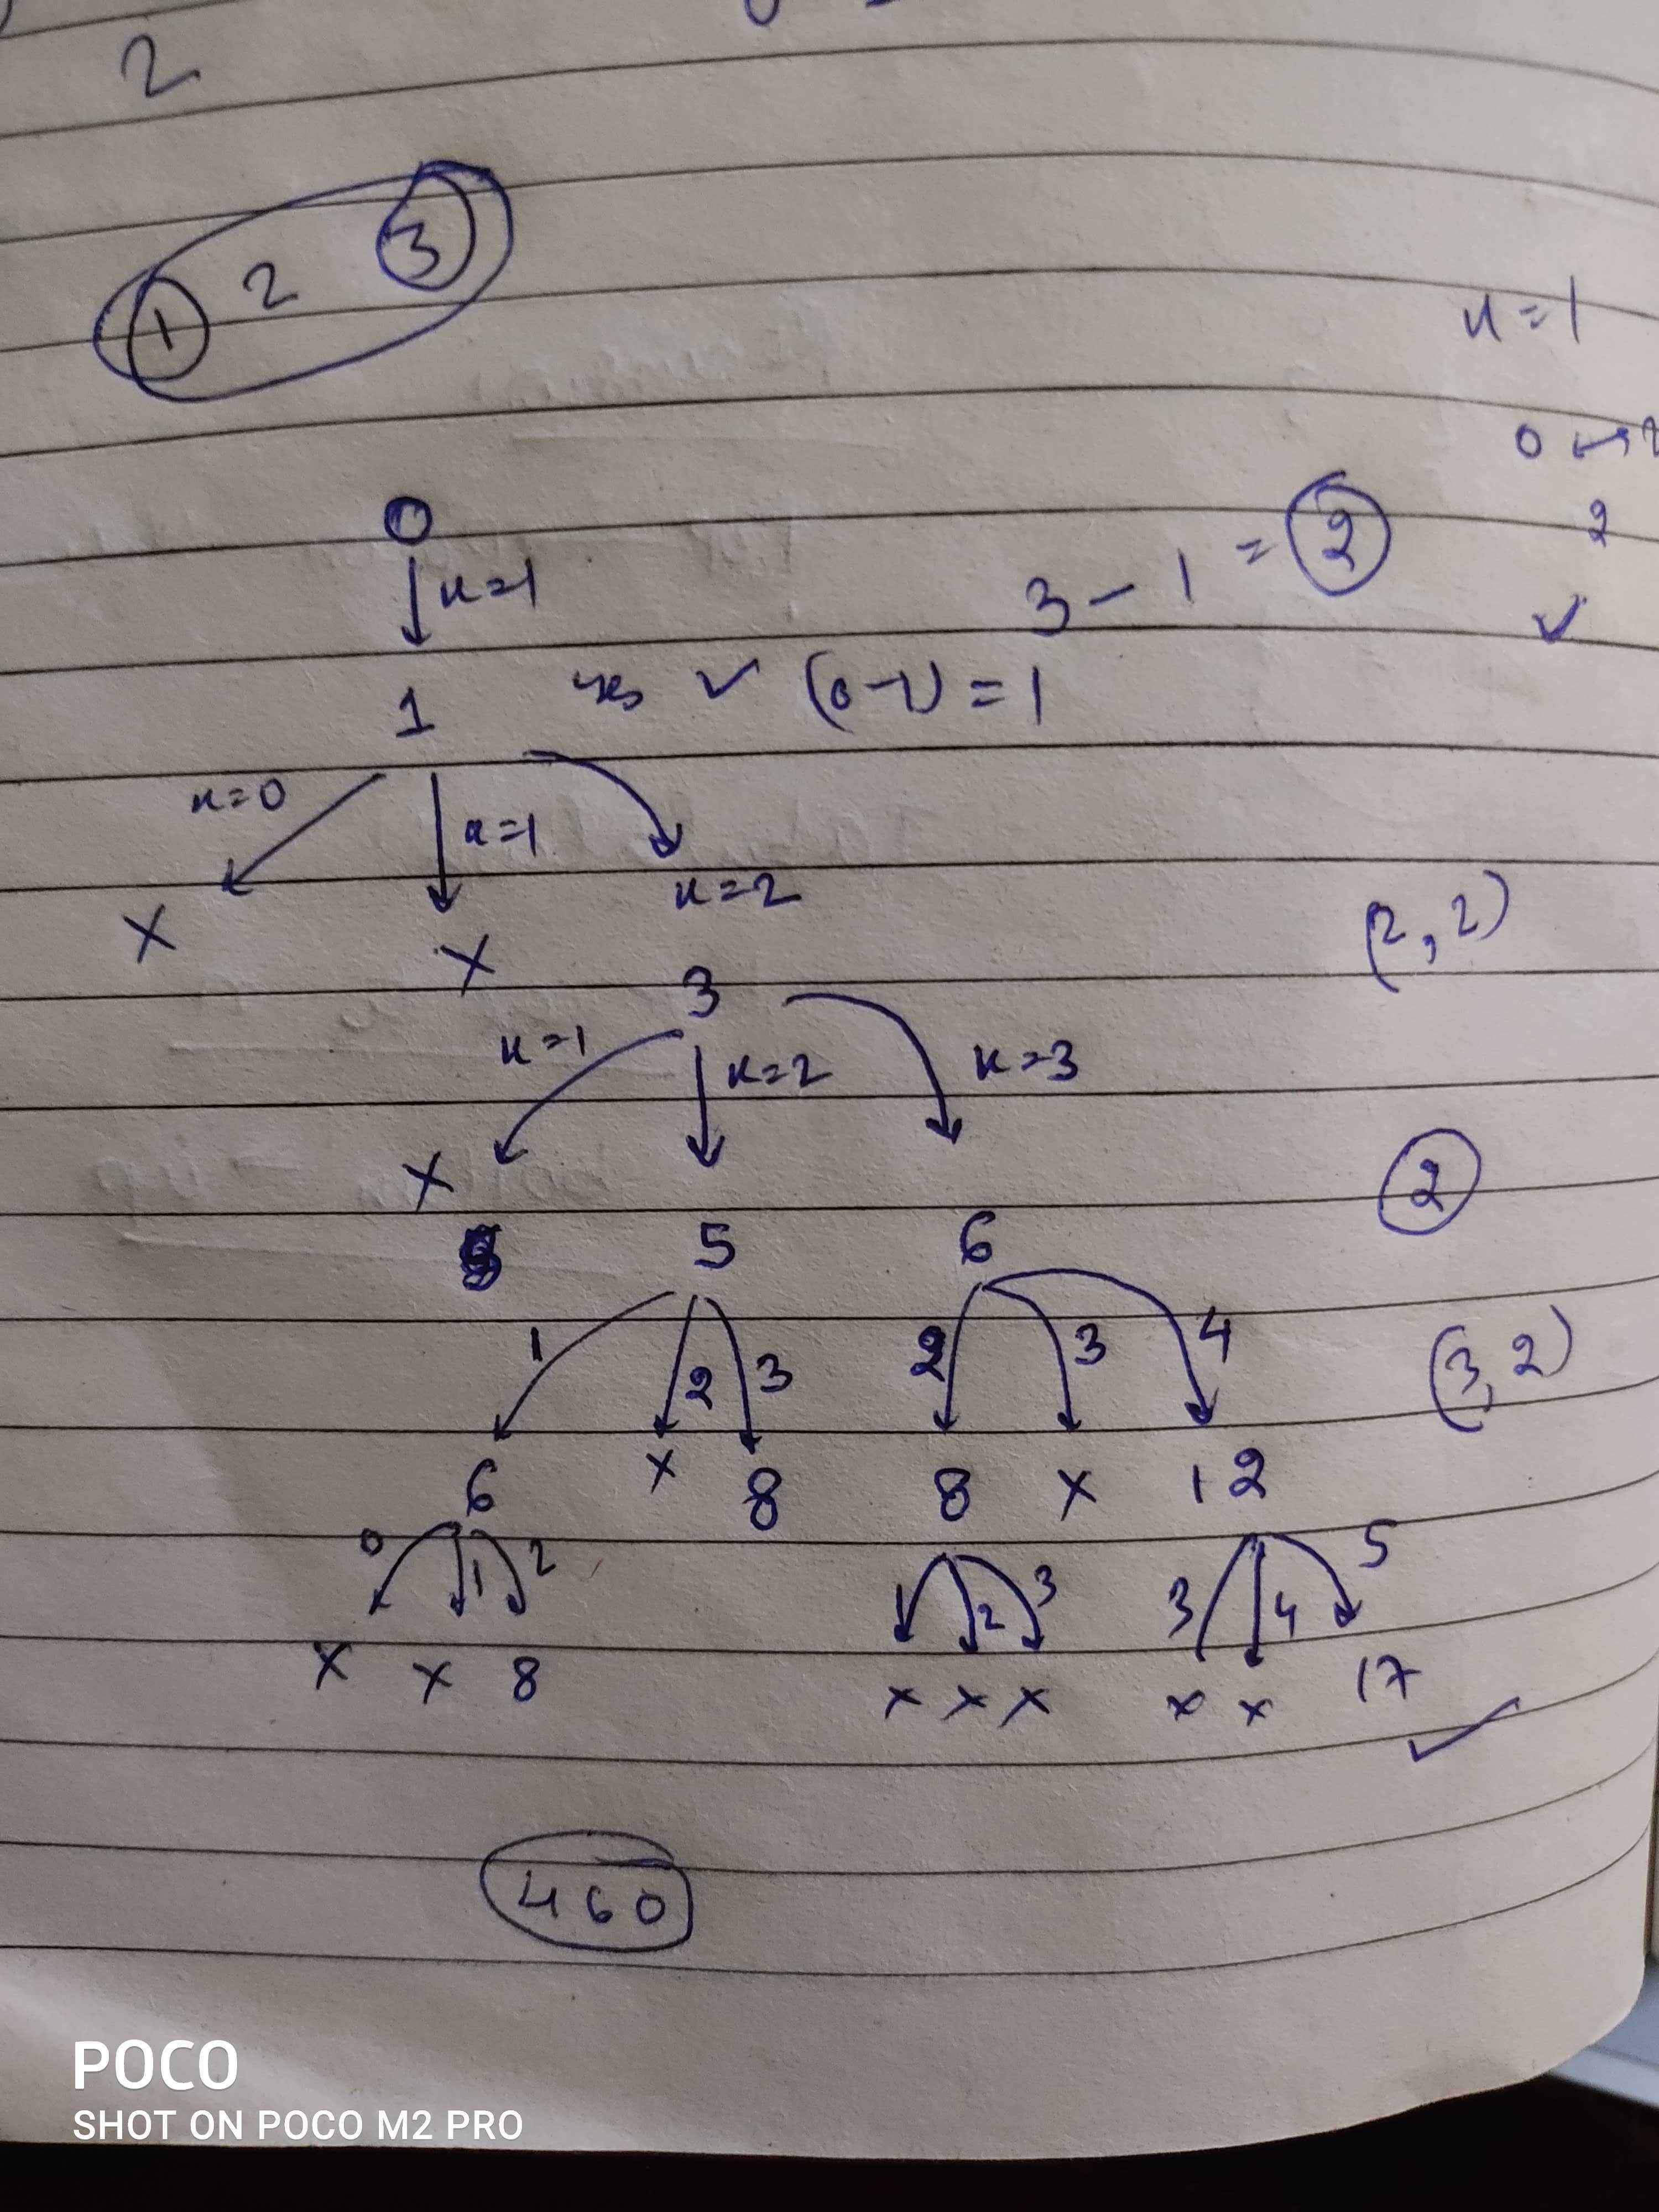 2
1 2 3
x=1
0
0
2
x=1
3 - 1 = 2
1 yes ✓ (0-1) = 1
✓
x=0 x=1 x=2
X X
(2, 2)
3
x=1 x=2 x=3
X
2
5 6
1 2 3 2 3 4
(3, 2)
6 X 8 8 X 12
0 1 2 2 3 3 4 5
X X 8 X X X X X 17
✓
460
POCO
SHOT ON POCO M2 PRO